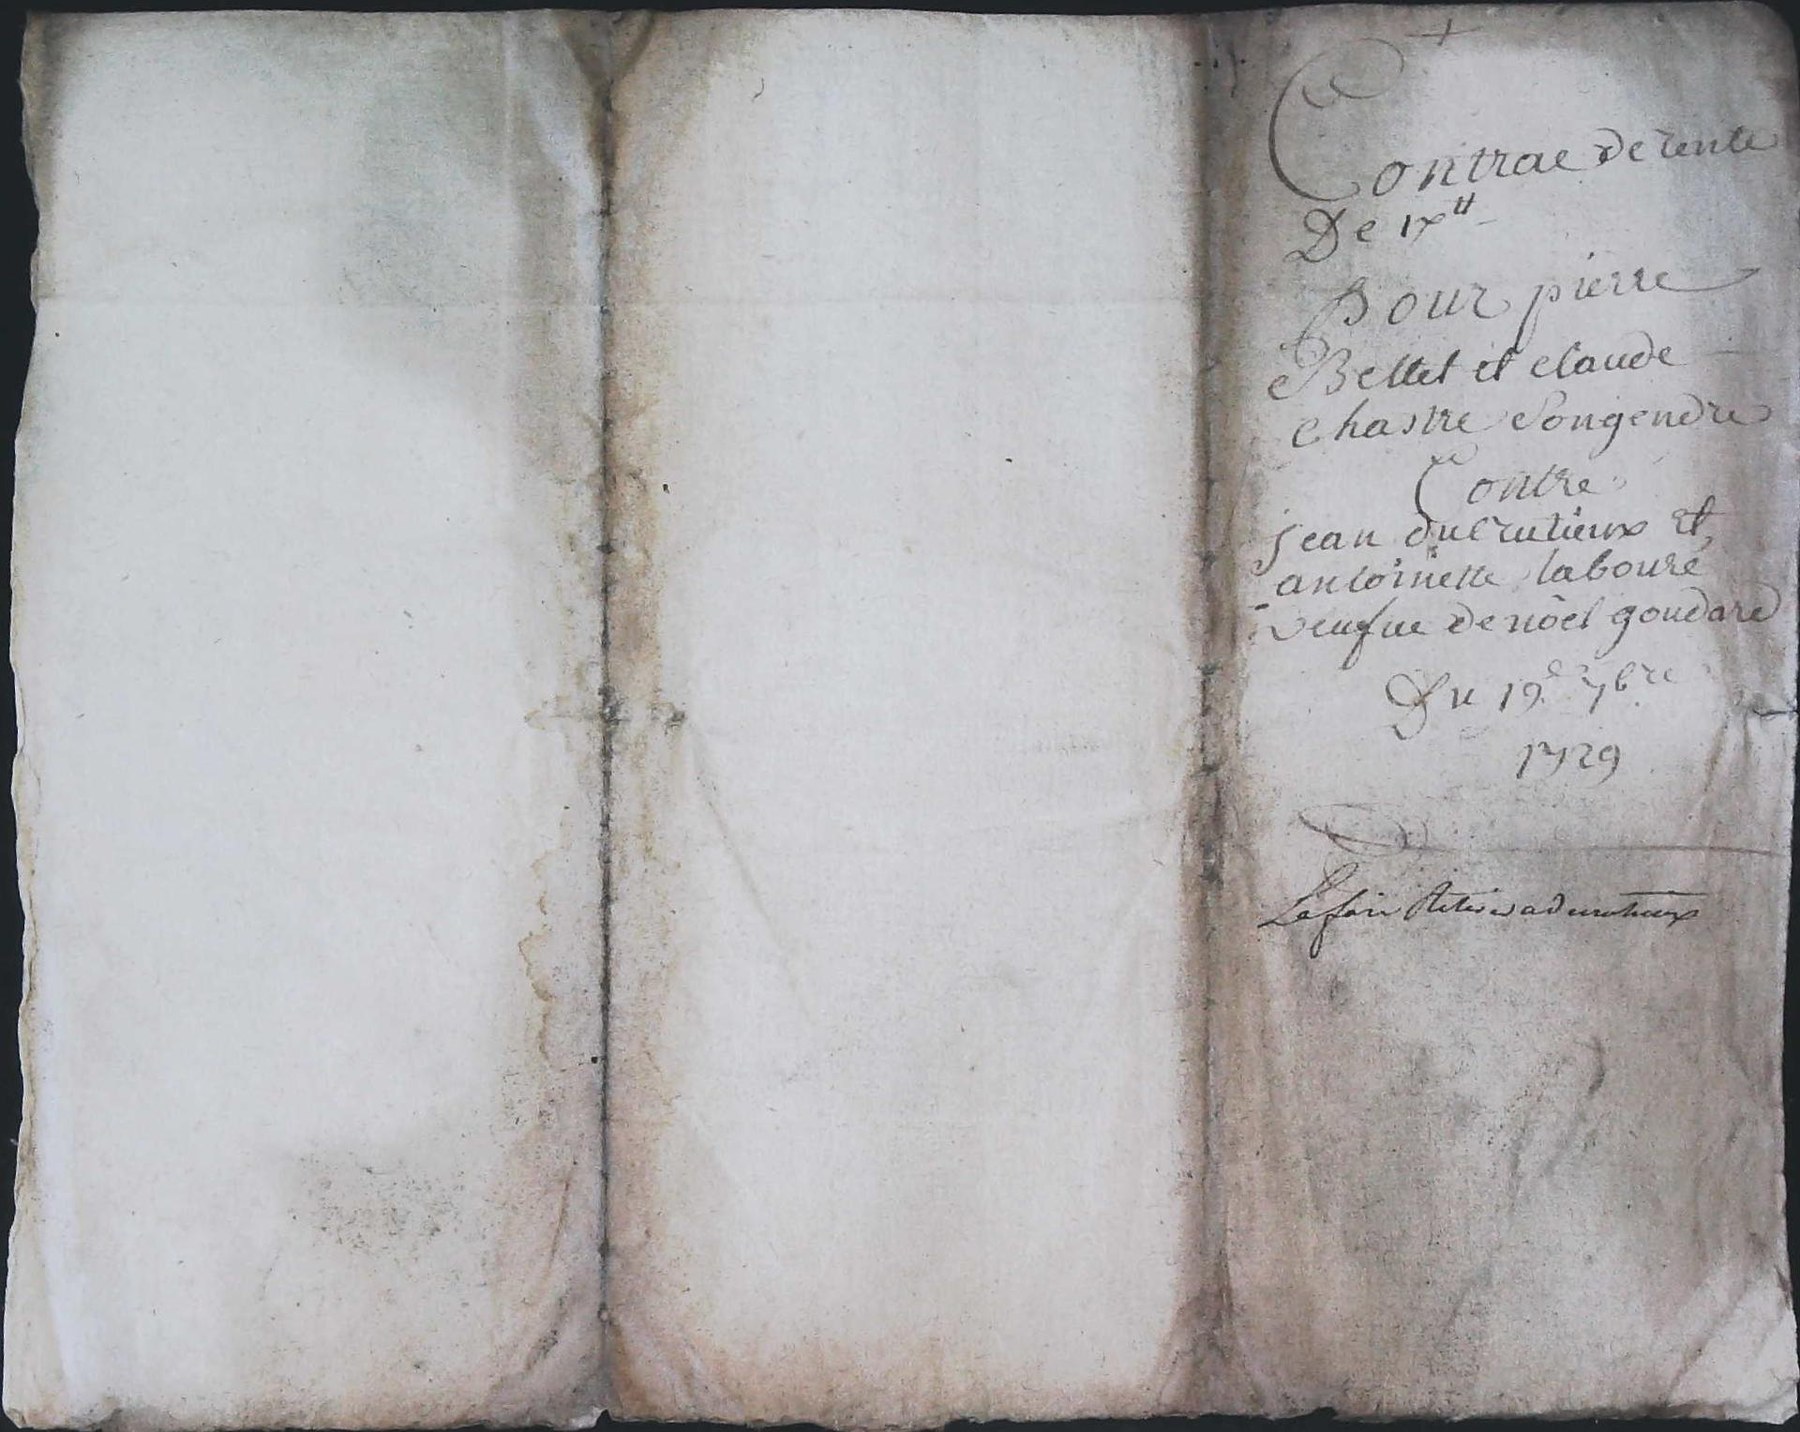 Contrac de rente
De ix<sup>tt</sup>
Pour pierre
Bellet et claude
Chastre Son gendre
Contre
jean ducrutieux et
antoinette labouré
veufue de nöel goudard
Du 19<sup>e</sup> 7<sup>bre</sup>
1729